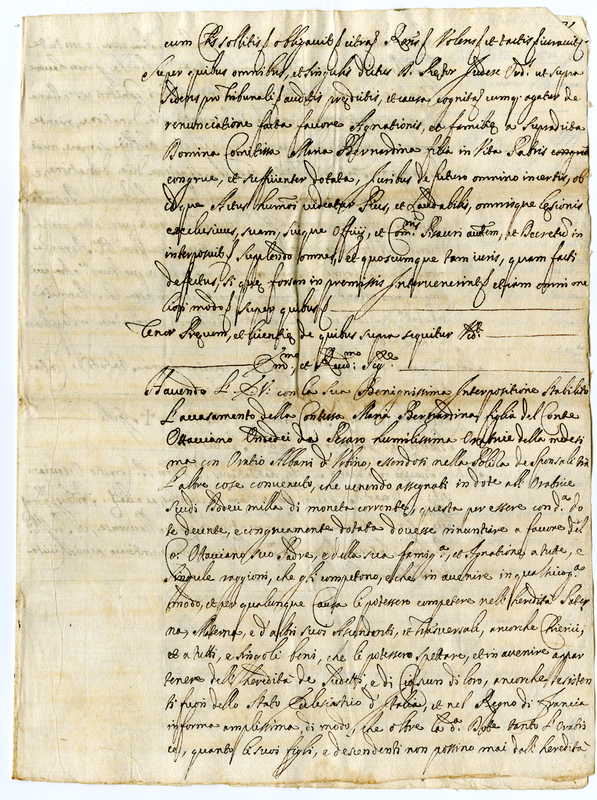 cum
Super quibus omnibus, et singulis dictus D. Pretor Judex Ord.s ut supra
sedens pro Tribunali auditis predictis, et causa cognita cumq. agatur de
renunciatione facta favore Agnationis, et familię a supradicta
Domina Comitissa Maria Bernardina filia in Vita Patris congrue
congrue, et sufficienter dotata, Juribus de futuro omnino incertis, ob
idque Actus huiusmodi dicatur Pius, et Laudabilis, omnisque lesionis
exclusivus, suam, suique Officij, et Com.nis Pisauri autem, et Decretum in
interposuit supplendo omnes, et quoscumque tam iuris, quam facti
defectus, si qui forsan in premissis Intervenerint etiam omni me
liori modo super quibus
Tenor Precum, et licentię de quibus supra sequitur
Em.mo et Rev.mo Sig.re
Havendo l'E. V. con la sua Benignissima Interpositione stabilito
l'accasamento della Contessa Maria Bernardina figlia del Conte
Ottaviano Ondedei da Pesaro humilissima Oratrice della medesi
ma con Oratio Albani d'Urbino, essendosi nella Poliza de sponsali tra
l'altre cose convenuto, che venendo assegnati in dote all'Oratrice
Scudi Dodeci milla di moneta corrente, questa per essere con d.a do
te decente, e congruamente dotata dovesse rinuntiare a favore del
Co: Ottaviano suo Padre, e della sua famig.a, et Agnatione a tutte, e
singule raggioni, che gli competono, e che in avenire in qualsivog.a
modo, et per qualunque Causa le potessero competere nell'heredità Pater
na Materna, e d'altri suoi Ascendenti, et Trasversali, ancorche
et a tutti, e singoli beni, che le potessero spettare, et in avenire appar
tenere dell'heredità de sudetti, e di Ciascun di loro, ancorche esisten
ti fuori dello Stato Ecclesiastico d'Italia, et nel Regno di Francia
in forma amplissima, di modo, che oltre la d.a Dote tanto l'Oratri
ce, quanto li suoi figli, e descendenti non possino mai dall'heredità